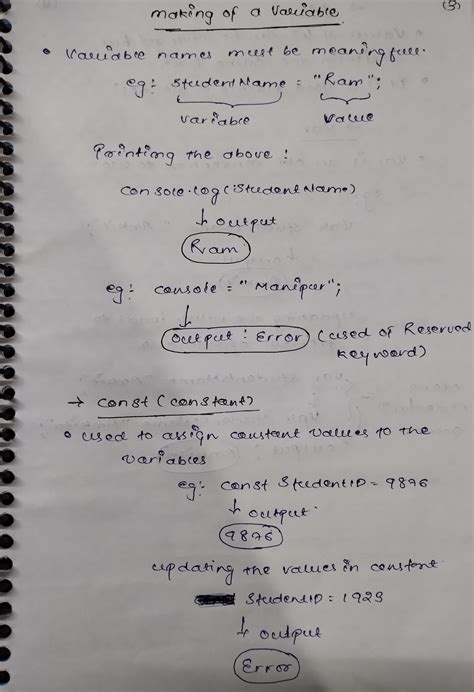 (3)
making of a variable
• Variable names must be meaningfull.
eg: studentName = "Ram";
variable value
Printing the above :
console.log(studentName)
↓ output
Ram
eg: console = "Manipur";
↓
output : Error (used of Reserved
keyword)
→ const (constant)
• used to assign constant values to the
variables
eg: const StudentID = 9876
↓ output
9876
updating the values in constant
StudentID = 1923
↓ output
Error